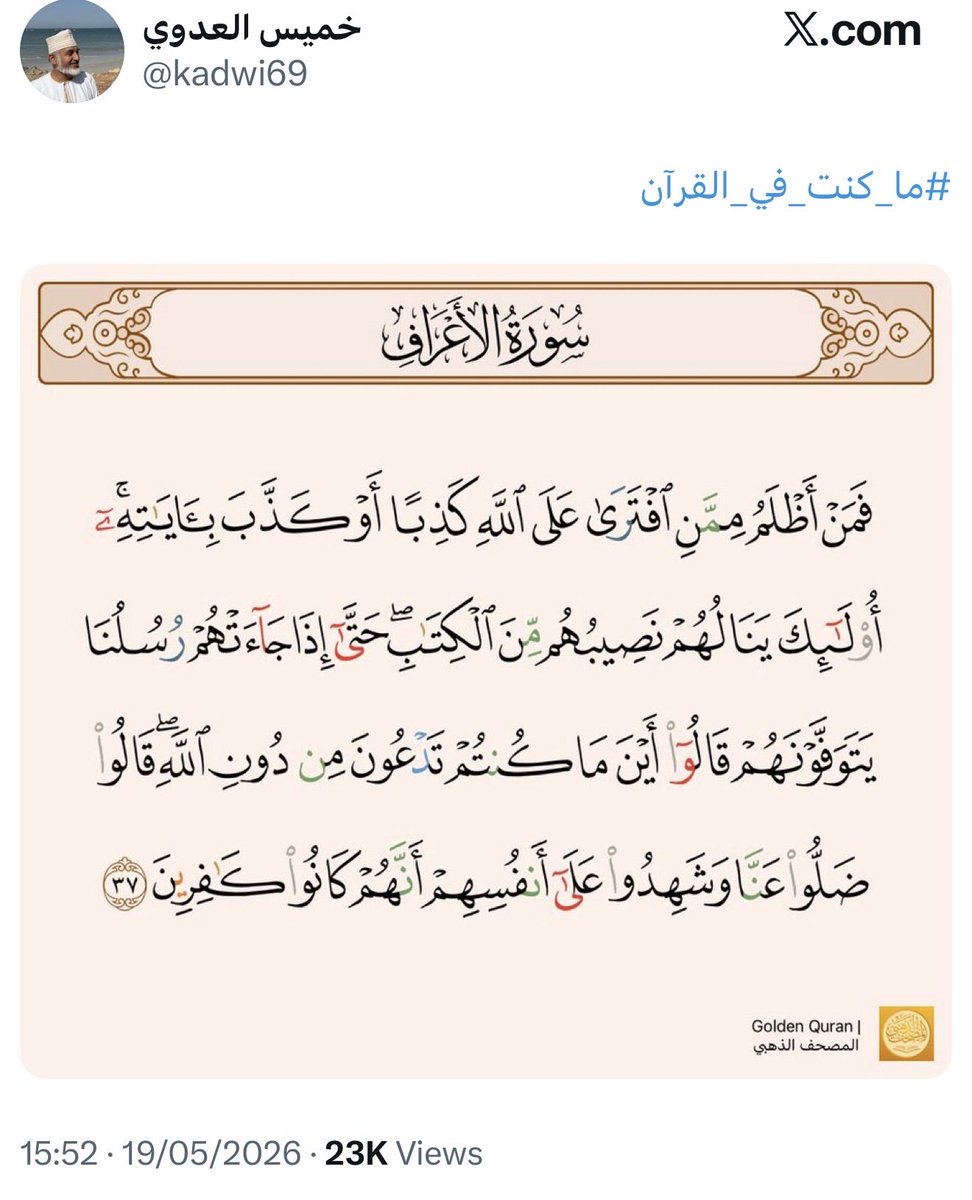 خميس العدوي
X.com
@kadwi69
#ما_كنت_في_القرآن
سُورَةُ الأَعْرَافِ
فَمَنْ أَظْلَمُ مِمَّنِ ٱفْتَرَىٰ عَلَى ٱللَّهِ كَذِبًا أَوْ كَذَّبَ بِـَٔايَـٰتِهِۦٓ ۚ
أُو۟لَـٰٓئِكَ يَنَالُهُمْ نَصِيبُهُم مِّنَ ٱلْكِتَـٰبِ ۖ حَتَّىٰٓ إِذَا جَآءَتْهُمْ رُسُلُنَا
يَتَوَفَّوْنَهُمْ قَالُوٓا۟ أَيْنَ مَا كُنتُمْ تَدْعُونَ مِن دُونِ ٱللَّهِ ۖ قَالُوا۟
ضَلُّوا۟ عَنَّا وَشَهِدُوا۟ عَلَىٰٓ أَنفُسِهِمْ أَنَّهُمْ كَانُوا۟ كَـٰفِرِينَ ٣٧
Golden Quran |
المصحف الذهبي
15:52 · 19/05/2026 · 23K Views